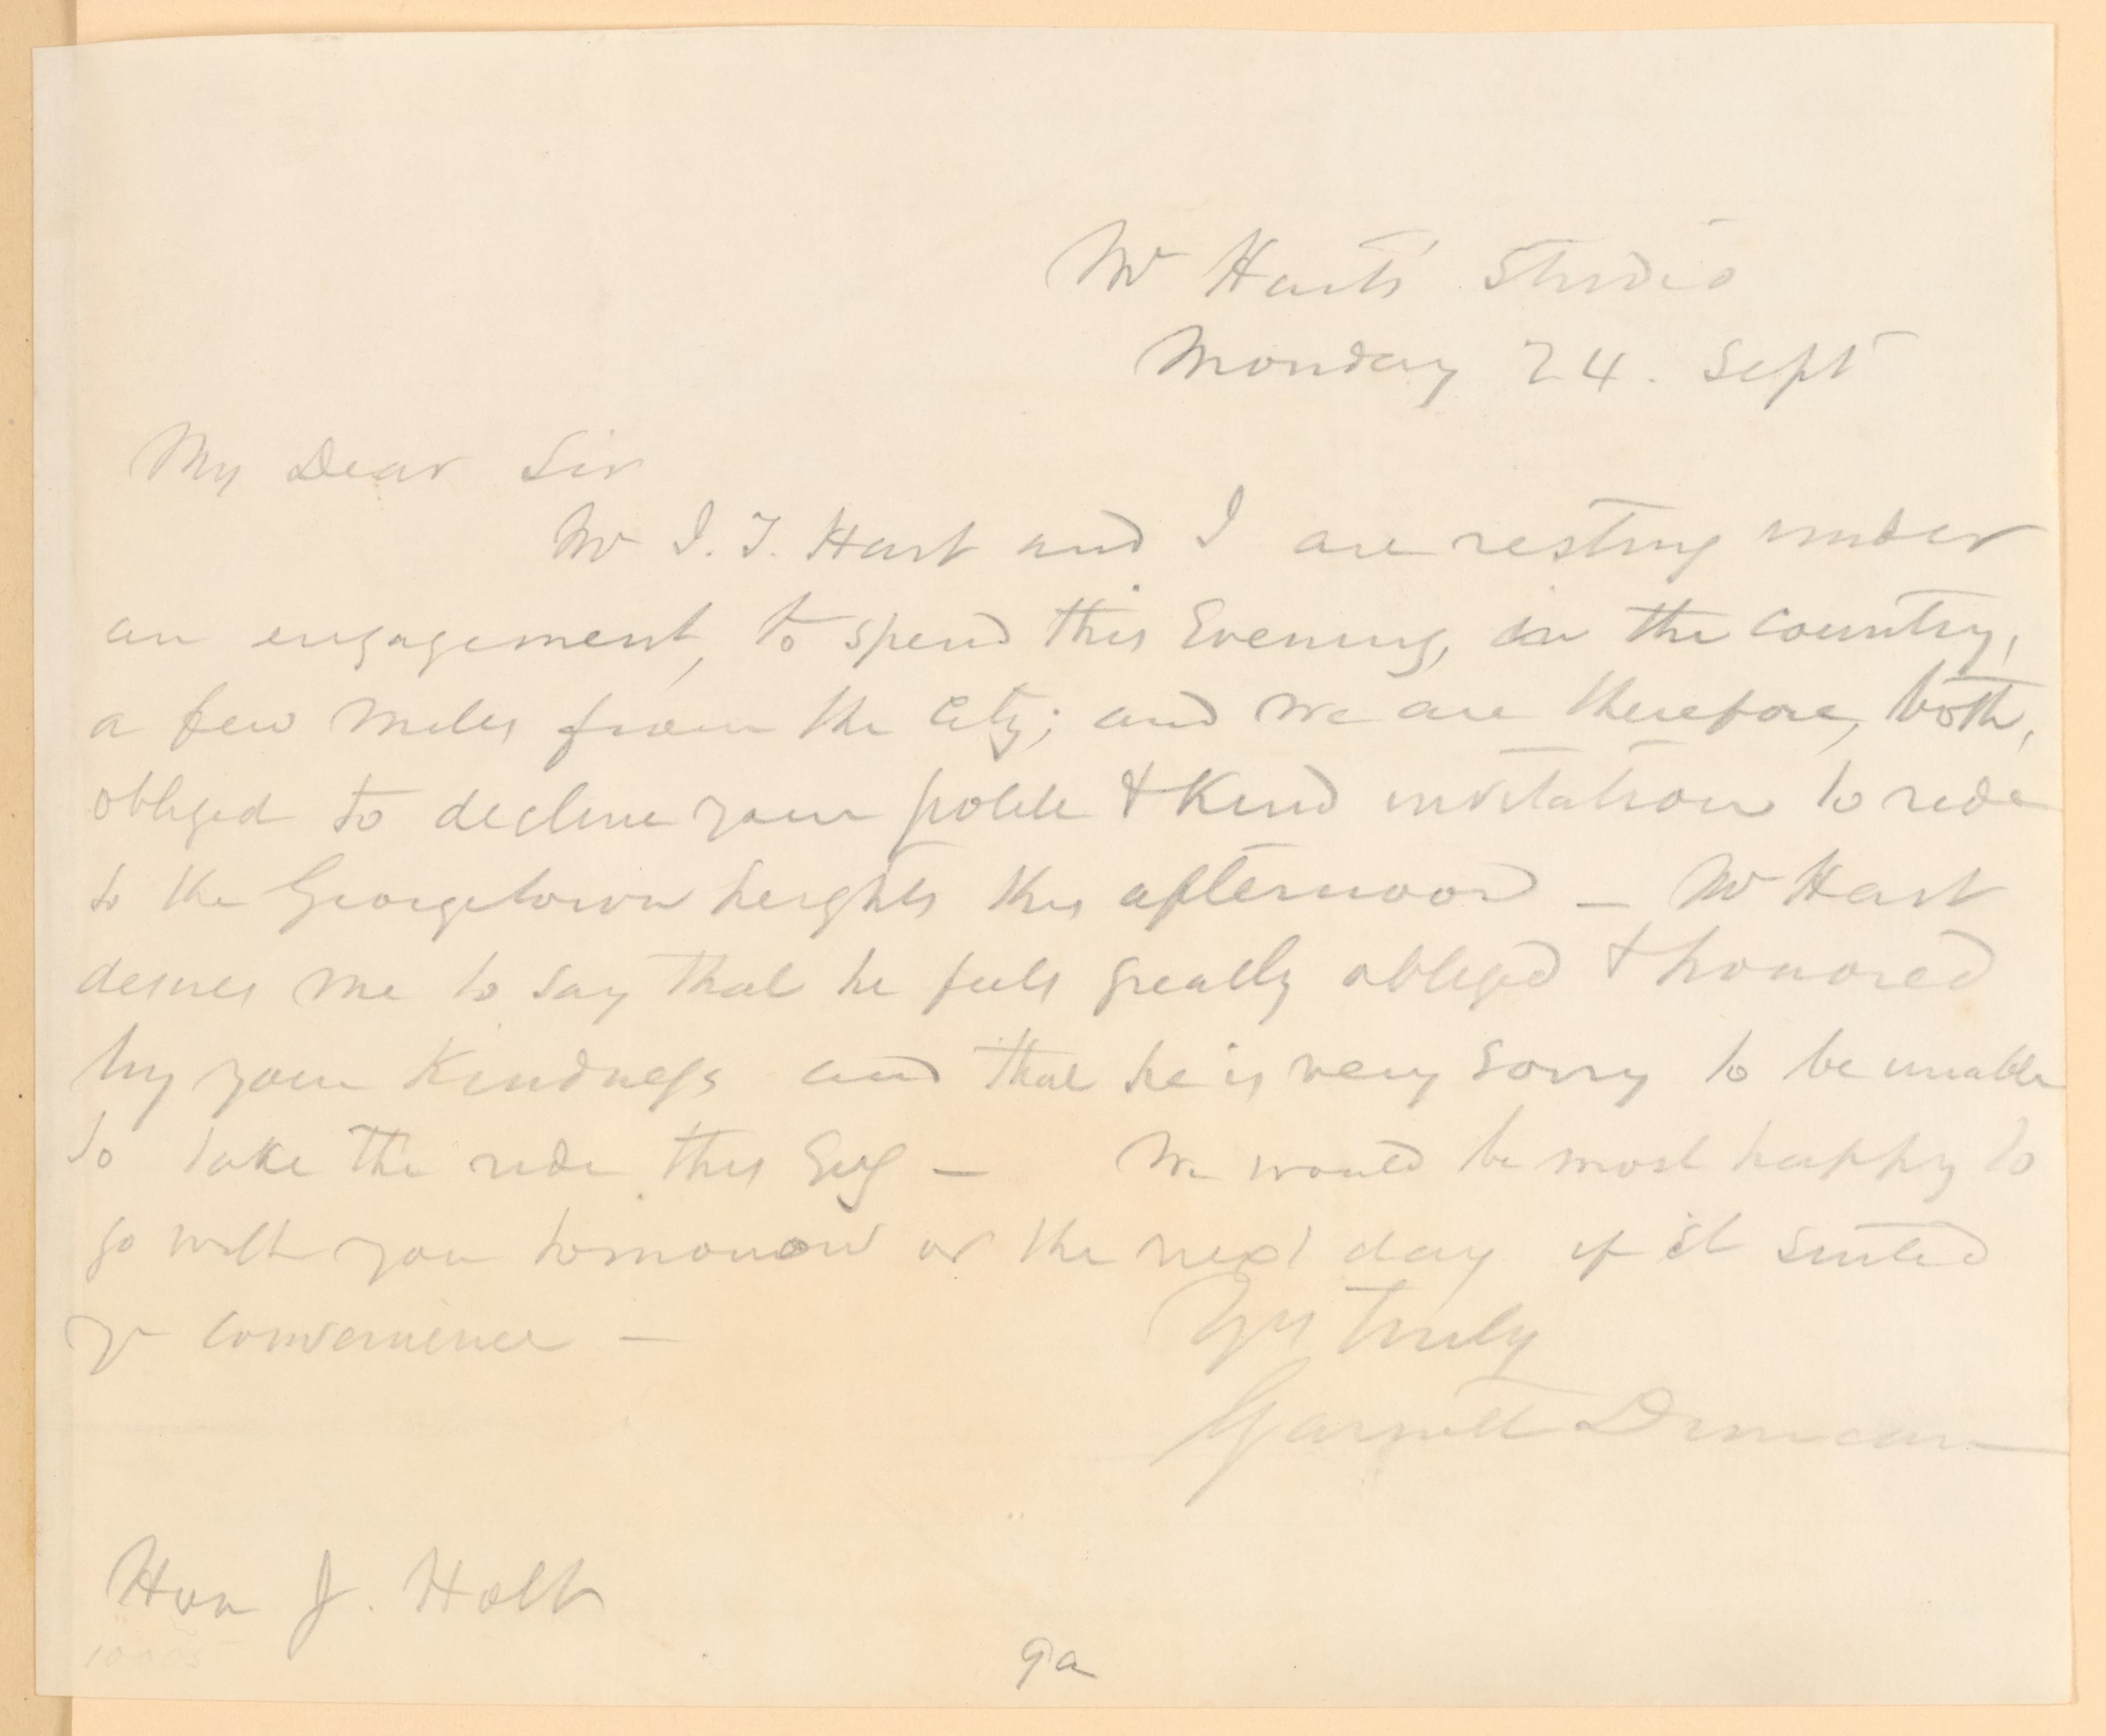 Mr Hart's Studio
Monday 24. Sept
My Dear Sir
Mr J. T. Hart and I are resting under
an engagement, to spend this Evening, in the country,
a few miles from the city; and we are therefore, both,
obliged to decline your polite & Kind invitation to ride
to the Georgetown heights this afternoon — Mr Hart
desires me to say that he feels greatly obliged & honored
by your Kindness and that he is very sorry to be unable
to take the ride this Evg — We would be most happy to
go with you tomorrow or the next day if it suited
yr convenience —
Yrs truly
Garnett Duncan
Hon J. Holt
9a